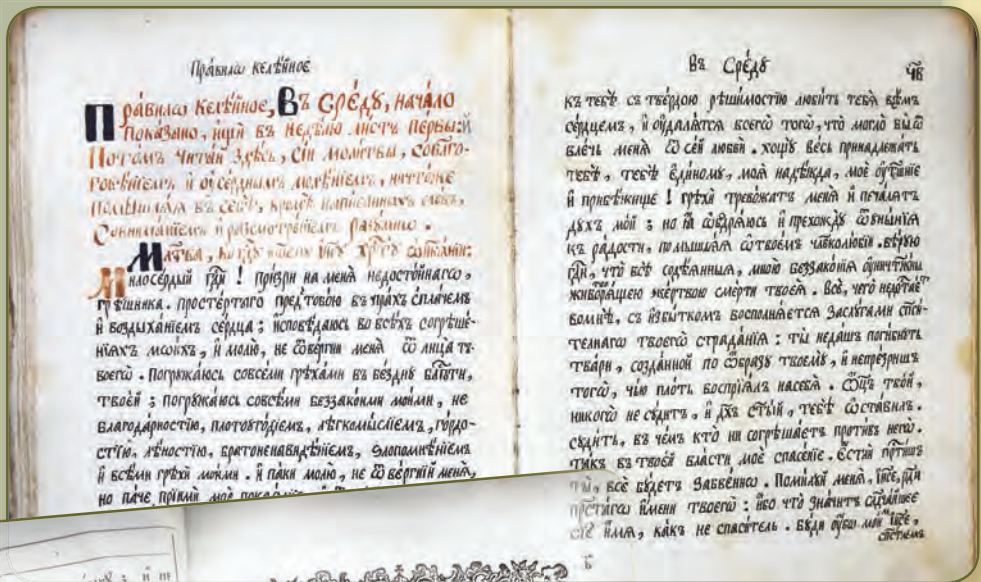 Пра́вило келе́йное
Пра́вило келе́йное, Въ Сре́дꙋ, нача́ло
пока́зано, ищѝ въ неде́лю ли́стъ пе́рвы:й
Пото́мъ чита́й здѣ́сь, сїѝ моли́твы, собл҃го-
говѣ́нїемъ и оу҆се́рднымъ моле́нїемъ, ничто́же
помышля́я въ себѣ̀, кро́мѣ напи́санныхъ сло́въ,
Совнима́нїемъ и разсмотре́нїемъ ра́зꙋмно.
Мл҃тва, ко гдⷭ҇ꙋ на́шемꙋ і҆и҃сꙋ хрⷭ҇тꙋ
Милосе́рдый гдⷭ҇и ! при́зри на меня̀ недосто́йнаго,
грѣ́шника. просте́ртаго пред̾тобо́ю въ пра́хъ спла́чемъ
и воздыха́нїемъ се́рдца ; исповѣ́даюсь во всѣ́хъ согрѣше́-
нїяхъ мои́хъ, и молю̀, не ѿве́ргни меня̀ ѿ лица̀ тъ-
воего̀. Погрꙋжа́юсь совсѣ́ми грѣха́ми въ бе́зднꙋ бл҃гости,
твое́й ; погрꙋжа́юсь совсѣ́ми беззако́нми мои́ми, не
благода́рностїю, плотоуго́дїемъ, легкомы́слїемъ, го́рдо-
стїю, лѣ́ностїю, братоненави́дѣнїемъ, ѕлопомнѣ́нїемъ
и всѣ́ми грѣхѝ мои́ми. и па́ки молю̀, не ѿве́ргни меня̀,
но па́че прїимѝ моѐ
Въ Сре́дꙋ
ч҃в
къ тебѣ̀ съ тве́рдою рѣши́мостїю люби́ть тебя̀ всѣ́мъ
се́рдцемъ, и оудаля́тся всего̀ того̀, что могло̀ бы ѿ
вле́чь меня̀ ѿ се́й любвѝ. хощꙋ̀ ве́сь принадлежа́ть
тебѣ̀, тебѣ̀ еди́номꙋ, моя̀ наде́жда, моѐ оутѣше́нїе
и прибѣ́жище ! грѣхѝ трево́жатъ меня̀ и печа́лятъ
дꙋ́хъ мо́й ; но я̀ ѡбодря́юсь и прехождꙋ̀ ѿ ꙋны́нїя
къ ра́дости, помышля́я ѡ твое́мъ чл҃вколю́бїи. вѣ́рꙋю
гдⷭ҇и, что всѣ̀ содѣ́янныя, мно́ю беззако́нїя оуничто́жны
животворя́щею же́ртвою сме́рти твоея̀. Всѐ, чего̀ недостае́тъ
вомнѣ̀, съ избы́ткомъ восполня́ется заслꙋ́гами сп҃си-
тельнаго твоего̀ страда́нїя : ты̀ неда́шъ поги́бнꙋть
тва́ри, со́зданной по ѡ́бразꙋ твоемꙋ̀, и непре́зришъ
того̀, чью̀ пло́ть воспрїя́лъ насебя̀. Ѻ҆ц҃ъ тво́й,
никого̀ не сꙋ́дитъ, и дх҃ъ ст҃ы́й, тебѣ̀ ѡста́вилъ.
сꙋди́ть, въ че́мъ кто̀ ни согрѣша́етъ про́тивъ него̀.
та́къ въ твое́й вла́сти моѐ спасе́нїе. Е́стли про́стишъ
ты̀, всѐ бꙋ́детъ забве́нно. Поми́лꙋй меня̀, і҆и҃се, ра́ди
преста́го и́мени твоего̀ : и́бо что̀ зна́читъ сладча́йшее
сїѐ и́мя, ка́къ не спаси́тель. бꙋ́ди оу҆́бо мо́й і҆и҃се,
спⷭ҇и́телемъ